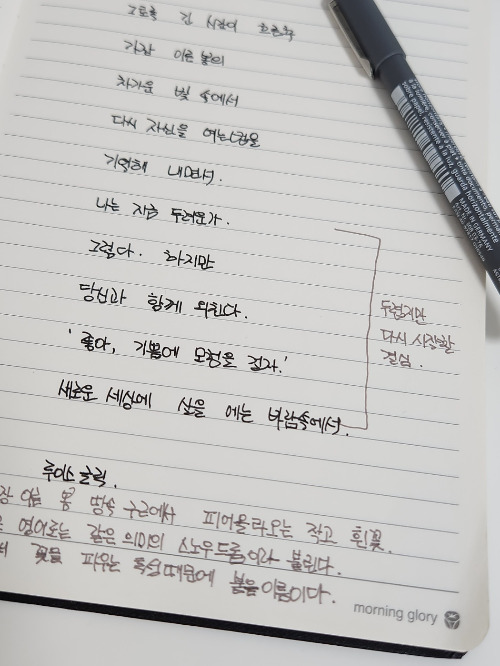 그토록 긴 시간이 흐른후
가장 이른 봄의
차가운 빛 속에서
다시 자신을 여는법을
기억해 내면서.
나는 지금 두려운가.
그렇다. 하지만
당신과 함께 외친다.
'좋아, 기쁨에 모험을 걸자.'
새로운 세상에 살을 에는 바람속에서.
두렵지만
다시 시작할
결심.
루이스 글릭.
이른 봄 땅속 구근에서 피어올라오는 작고 흰꽃.
영어로는 같은 의미의 스노우드롭이라 불린다.
꽃을 피우는 특성때문에 붙은이름이다.
morning glory
MADE IN GERMANY